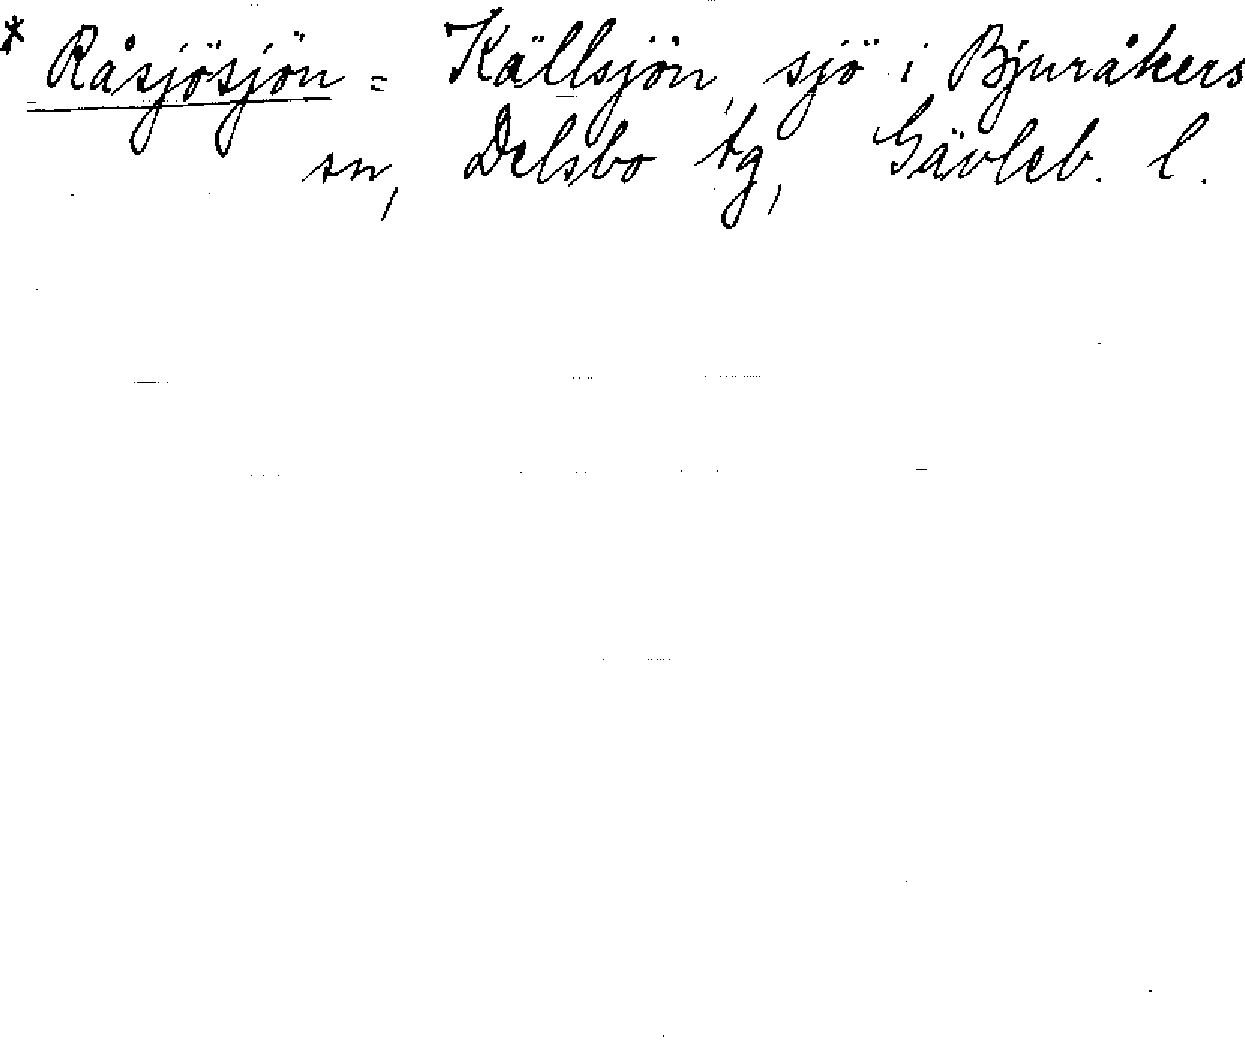 * Råsjösjön = Källsjön, sjö i Bjuråkers
sn, Delsbo tg, Gävleb. l.